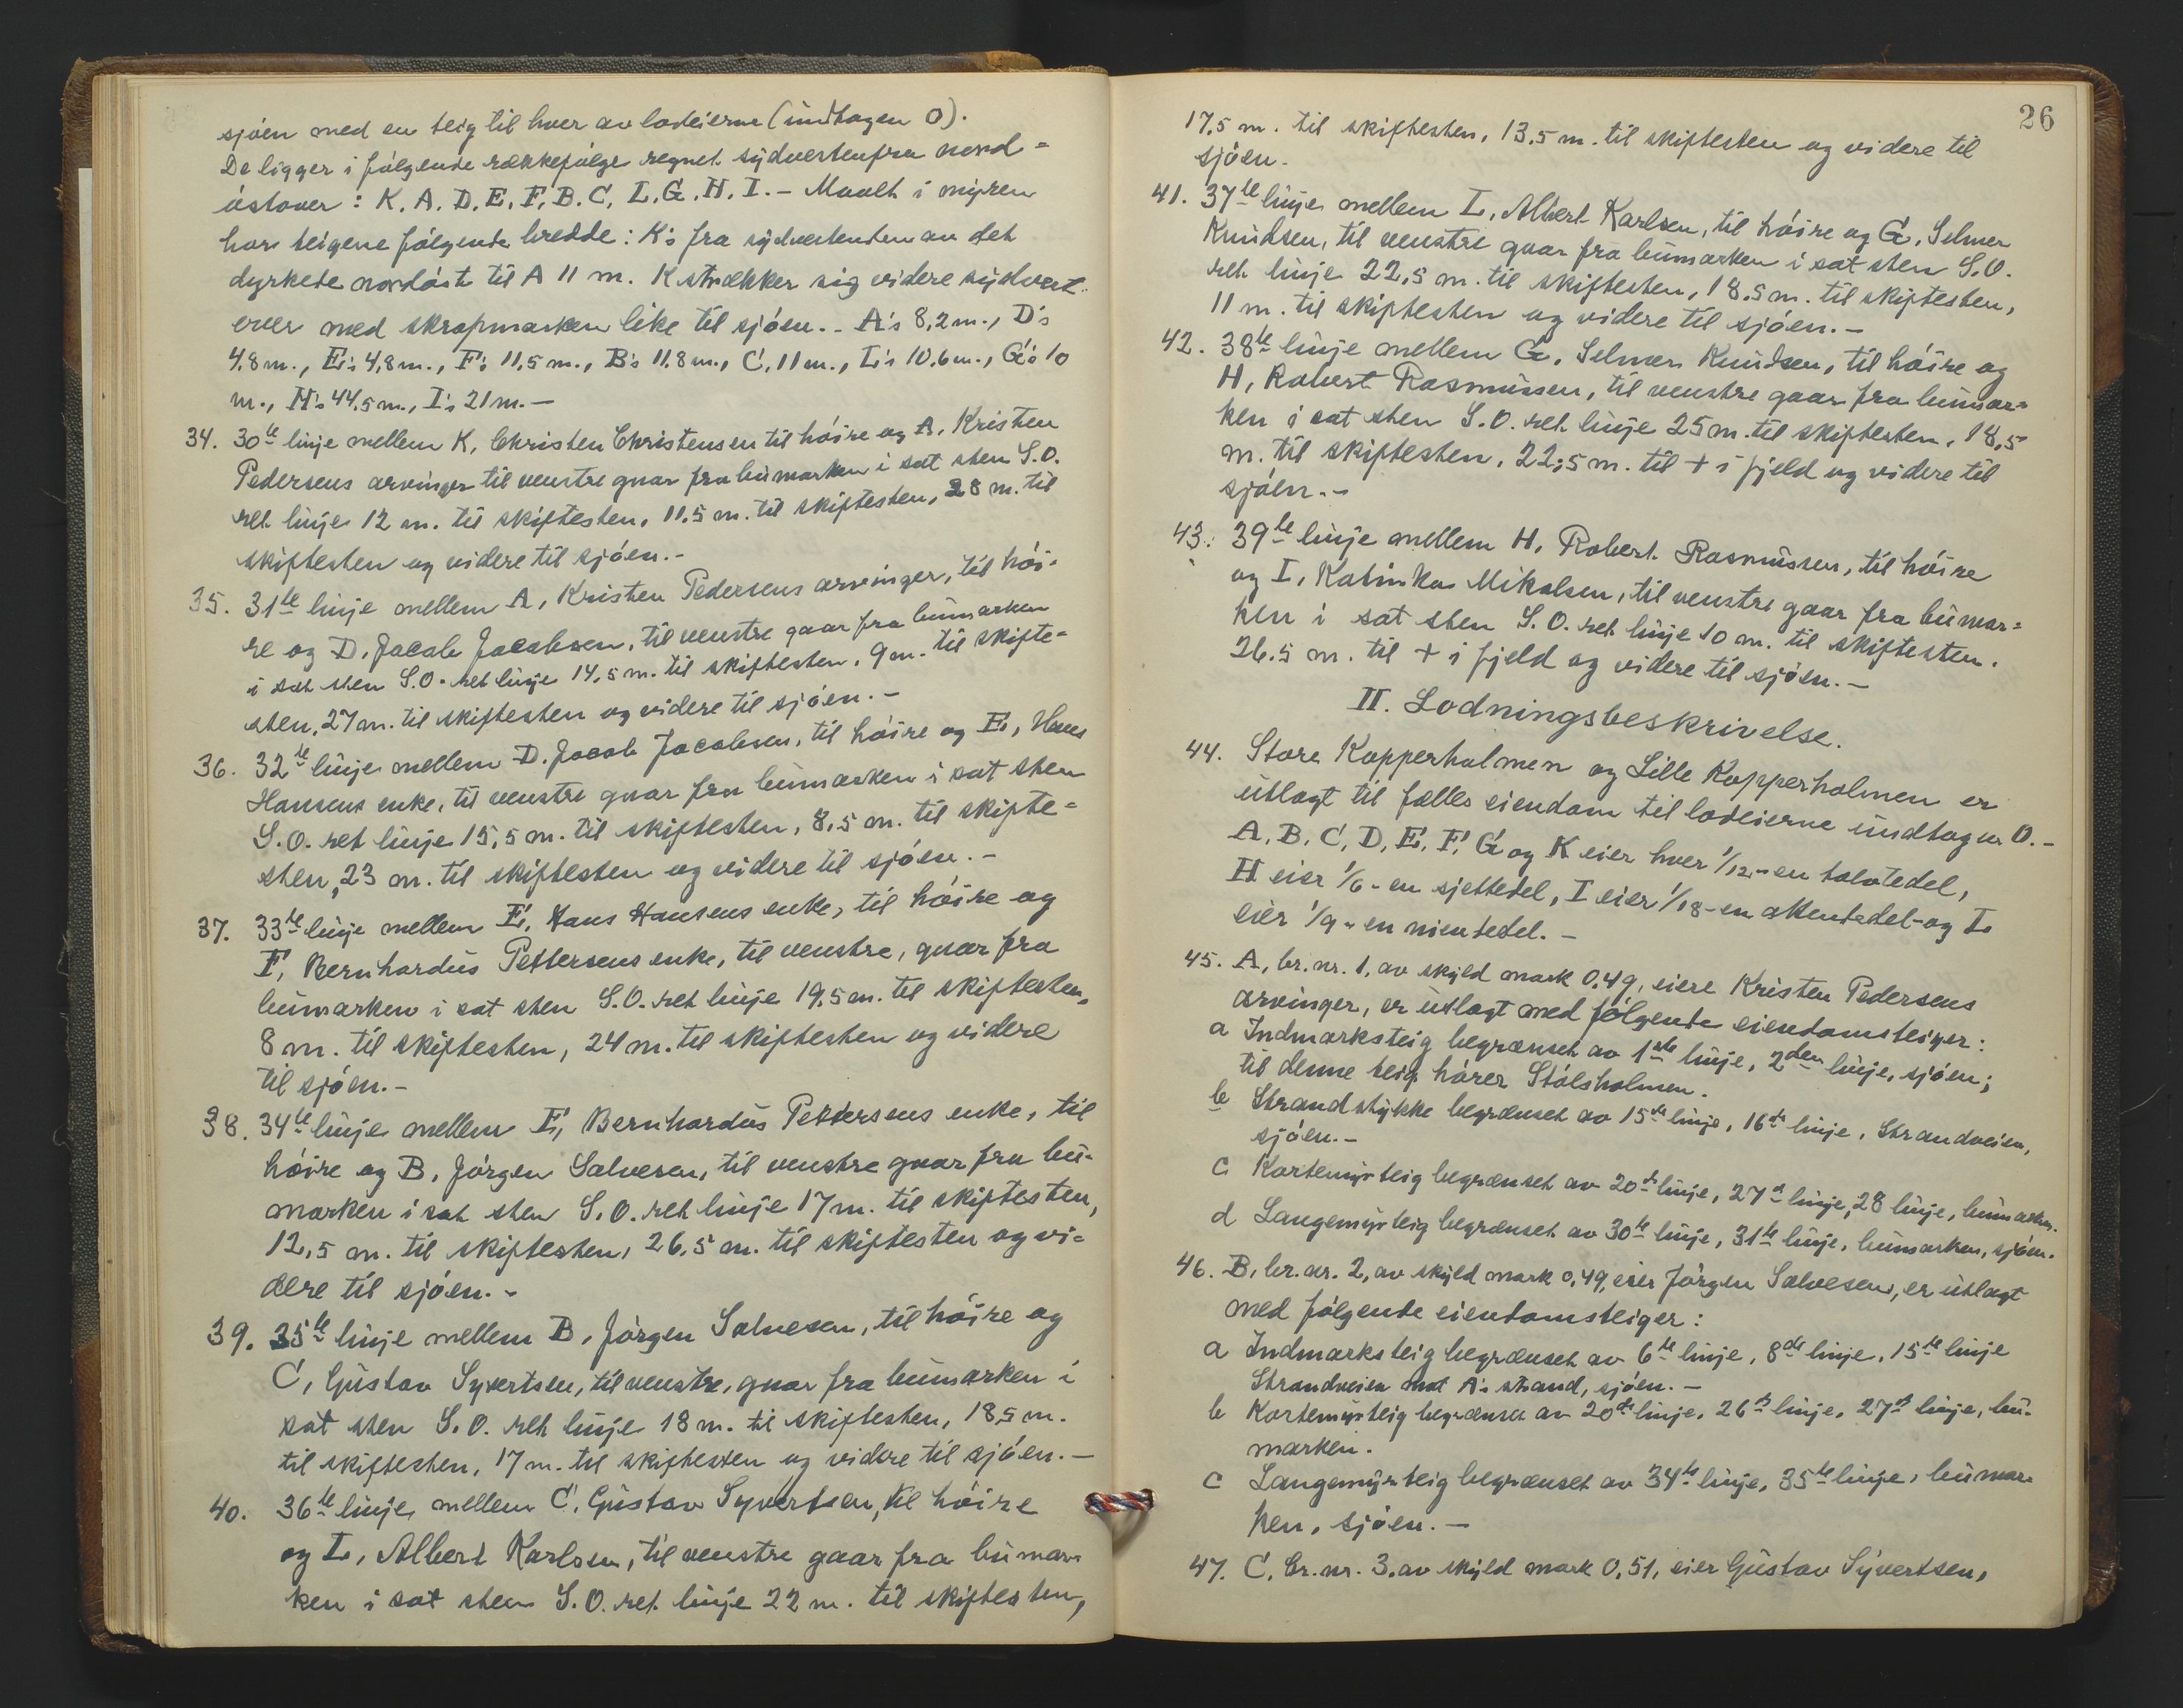 sjøen med en teig til hver av lodeierne (undtagen O).
De ligger i følgende rækkefølge regnet sydvestenfra nord=
østover: K. A. D. E. F. B. C. L. G. H. I. – Maalt i myren
har teigene følgende bredde: K's fra sydvestenden av det
dyrkede nordøst til A 11 m. K strækker sig videre sydvest-
over med skrapmarken like til sjøen. – A's 8,2 m., D's
4,8 m., E's 4,8 m., F's 11,5 m., B's 11,8 m., C, 11 m., L's 10,6 m., G's 10
m., H's 44,5 m., I's 21 m. –
34. 30te linje mellem K, Christen Christensen til høire og A, Kristen
Pedersens arvinger til venstre gaar fra bumarken i sat sten S.O.
ret linje 12 m. til skiftesten, 11,5 m. til skiftesten, 28 m. til
skiftesten og videre til sjøen. –
35. 31te linje mellem A, Kristen Pedersens arvinger, til høi-
re og D. Jacob Jacobsen, til venstre gaar fra bumarken
i sat sten S.O. ret linje 14,5 m. til skiftesten, 9 m. til skifte=
sten, 27 m. til skiftesten og videre til sjøen. –
36. 32te linje mellem D. Jacob Jacobsen, til høire og E, Hans
Hansens enke, til venstre gaar fra bumarken i sat sten
S.O. ret linje 15,5 m. til skiftesten, 8,5 m. til skifte=
sten, 23 m. til skiftesten og videre til sjøen. –
37. 33te linje mellem E, Hans Hansens enke, til høire og
F, Bernhardus Pettersens enke, til venstre, gaar fra
bumarken i sat sten S.O. ret linje 19,5 m. til skiftesten,
8 m. til skiftesten, 24 m. til skiftesten og videre
til sjøen. –
38. 34te linje mellem F, Bernhardus Pettersens enke, til
høire og B, Jørgen Salvesen, til venstre gaar fra bu-
marken i sat sten S.O. ret linje 17 m. til skiftesten,
12,5 m. til skiftesten, 26,5 m. til skiftesten og vi=
dere til sjøen. –
39. 35te linje mellem B, Jørgen Salvesen, til høire og
C, Gustav Syvertsen, til venstre, gaar fra bumarken i
sat sten S.O. ret linje 18 m. til skiftesten, 18,5 m.
til skiftesten, 17 m. til skiftesten og videre til sjøen. –
40. 36te linje mellem C, Gustav Syvertsen, til høire
og L, Albert Karlsen, til venstre gaar fra bumar-
ken i sat sten S.O. ret linje 22 m. til skiftesten,
26
17,5 m. til skiftesten, 13,5 m. til skiftesten og videre til
sjøen.
41. 37te linje mellem L, Albert Karlsen, til høire og G, Selmer
Knudsen, til venstre gaar fra bumarken i sat sten S.O.
ret linje 22,5 m. til skiftesten, 18,5 m. til skiftesten,
11 m. til skiftesten og videre til sjøen. –
42. 38te linje mellem G, Selmer Knudsen, til høire og
H, Robert Rasmussen, til venstre gaar fra bumar=
ken i sat sten S.O. ret linje 25 m. til skiftesten, 18,5
m. til skiftesten, 22,5 m. til + i fjeld og videre til
sjøen. –
43. 39te linje mellem H, Robert Rasmussen, til høire
og I, Katinka Mikalsen, til venstre gaar fra bumar=
ken i sat sten S.O. ret linje 10 m. til skiftesten.
26.5 m. til + i fjeld og videre til sjøen. –
II. Lodningsbeskrivelse.
44. Store Kopperholmen og Lille Kopperholmen er
utlagt til fælles eiendom til lodeierne undtagen O. –
A, B, C, D, E, F, G og K eier hver 1/12 - en tolvtedel,
H eier 1/6 - en sjettedel, I eier 1/18 - en attendedel - og L
eier 1/9 - en niendedel. –
45. A, br. nr. 1, av skyld mark 0,49, eiere Kristen Pedersens
arvinger, er utlagt med følgende eiendomsteiger:
a Indmarksteig begrænset av 1ste linje, 2den linje, sjøen;
til denne teig hører Stølsholmen.
b Strandstykke begrænset av 15de linje, 16de linje, Strandveien,
sjøen. –
c Kortemyrteig begrænset av 20de linje, 27de linje, 28 linje, bumarken.
d Langemyrteig begrænset av 30te linje, 31te linje, bumarken, sjøen.
46. B, br. nr. 2, av skyld mark 0,49, eier Jørgen Salvesen, er utlagt
med følgende eiendomsteiger:
a Indmarksteig begrænset av 6te linje, 8de linje, 15te linje
Strandveien mot A's strand, sjøen. –
b Kortemyrteig begrænset av 20de linje, 26de linje, 27de linje, bu-
marken.
c Langemyrteig begrænset av 34te linje, 35te linje, bumar-
ken, sjøen. –
47. C, br. nr. 3, av skyld mark 0,51, eier Gustav Syvertsen,